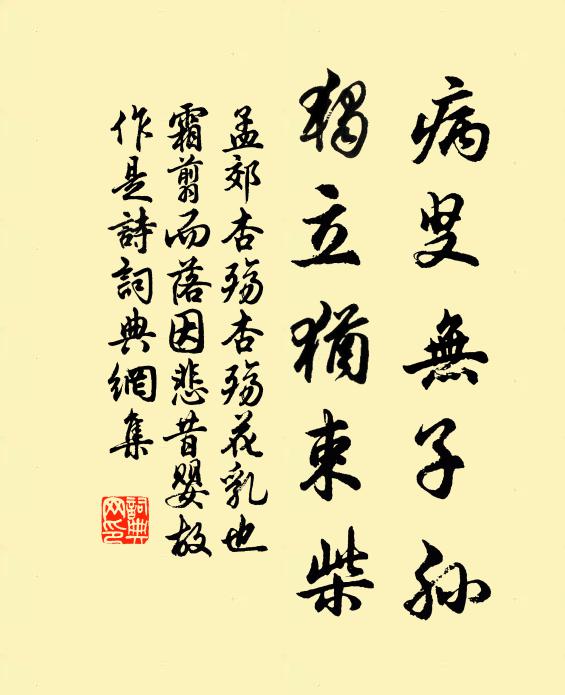 病叟無子孫
獨立猶束柴
孟郊杏殤杏殤花乳也
霜翦而落因悲昔嬰故
作是詩詞典網集
詞典網印